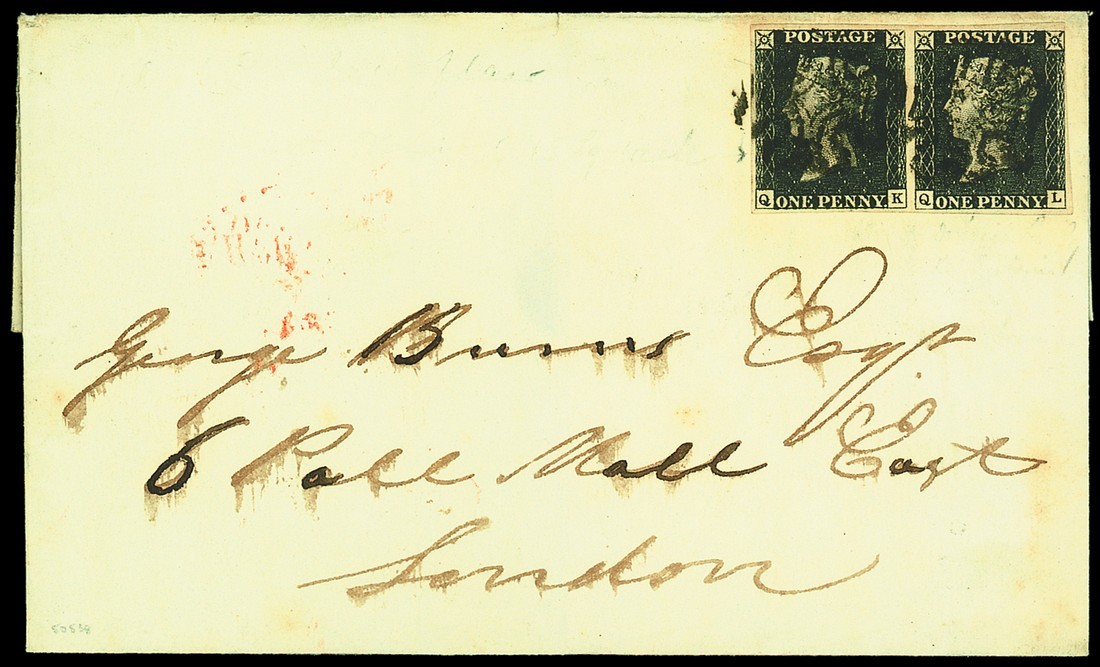 POSTAGE POSTAGE
Q ONE PENNY K Q ONE PENNY L
George Burns Esqr
6 Pall Mall East
London
50538